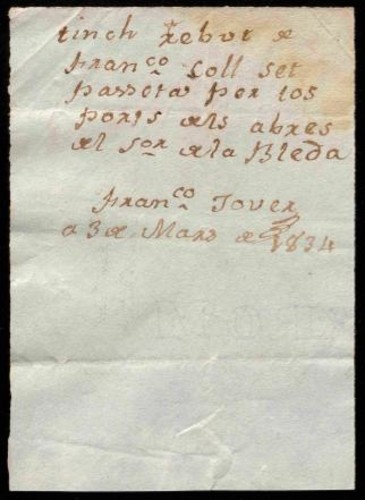 tinch rebut de
franco Coll set
passeta per los
ports dels abres
del sor de la Bleda
franco Tover
a 3 de Mars de 1834